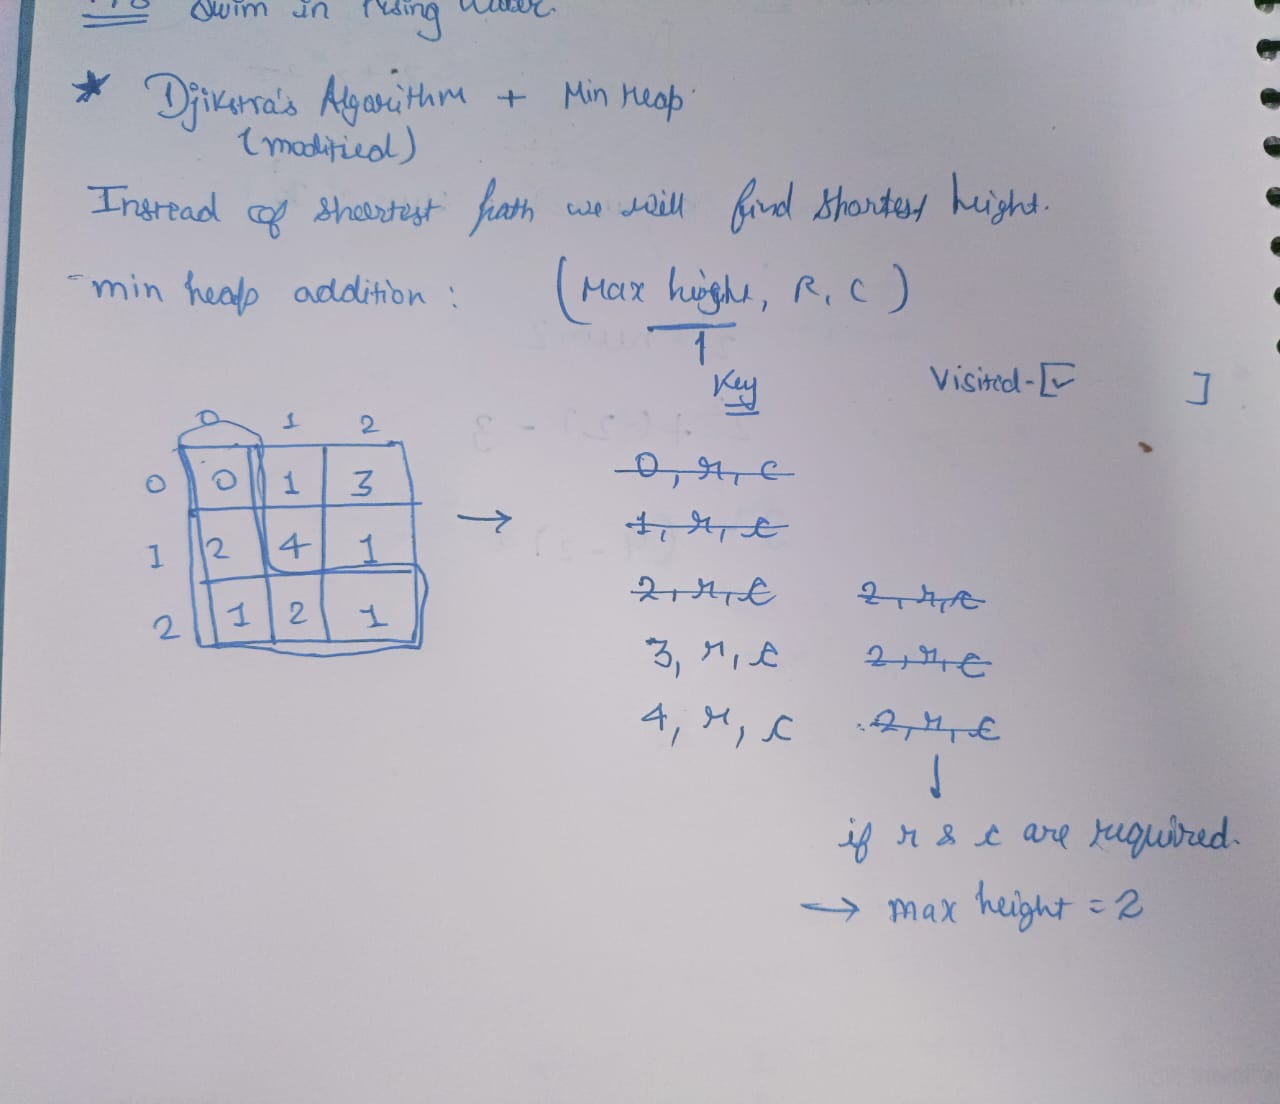 Swim in rising water.
* Djikstra's Algorithm + Min Heap
(modified)
Instead of shortest path we will find shortest height.
- min heap addition : (Max height, R, C)
1
Key
Visited - [✓ ]
0 1 2
0 0 1 3
1 2 4 1
2 1 2 1
→
0, r, c
1, r, c
2, r, c 2, r, c
3, r, c 2, r, c
4, r, c 2, r, c
↓
if r & c are required.
→ max height = 2